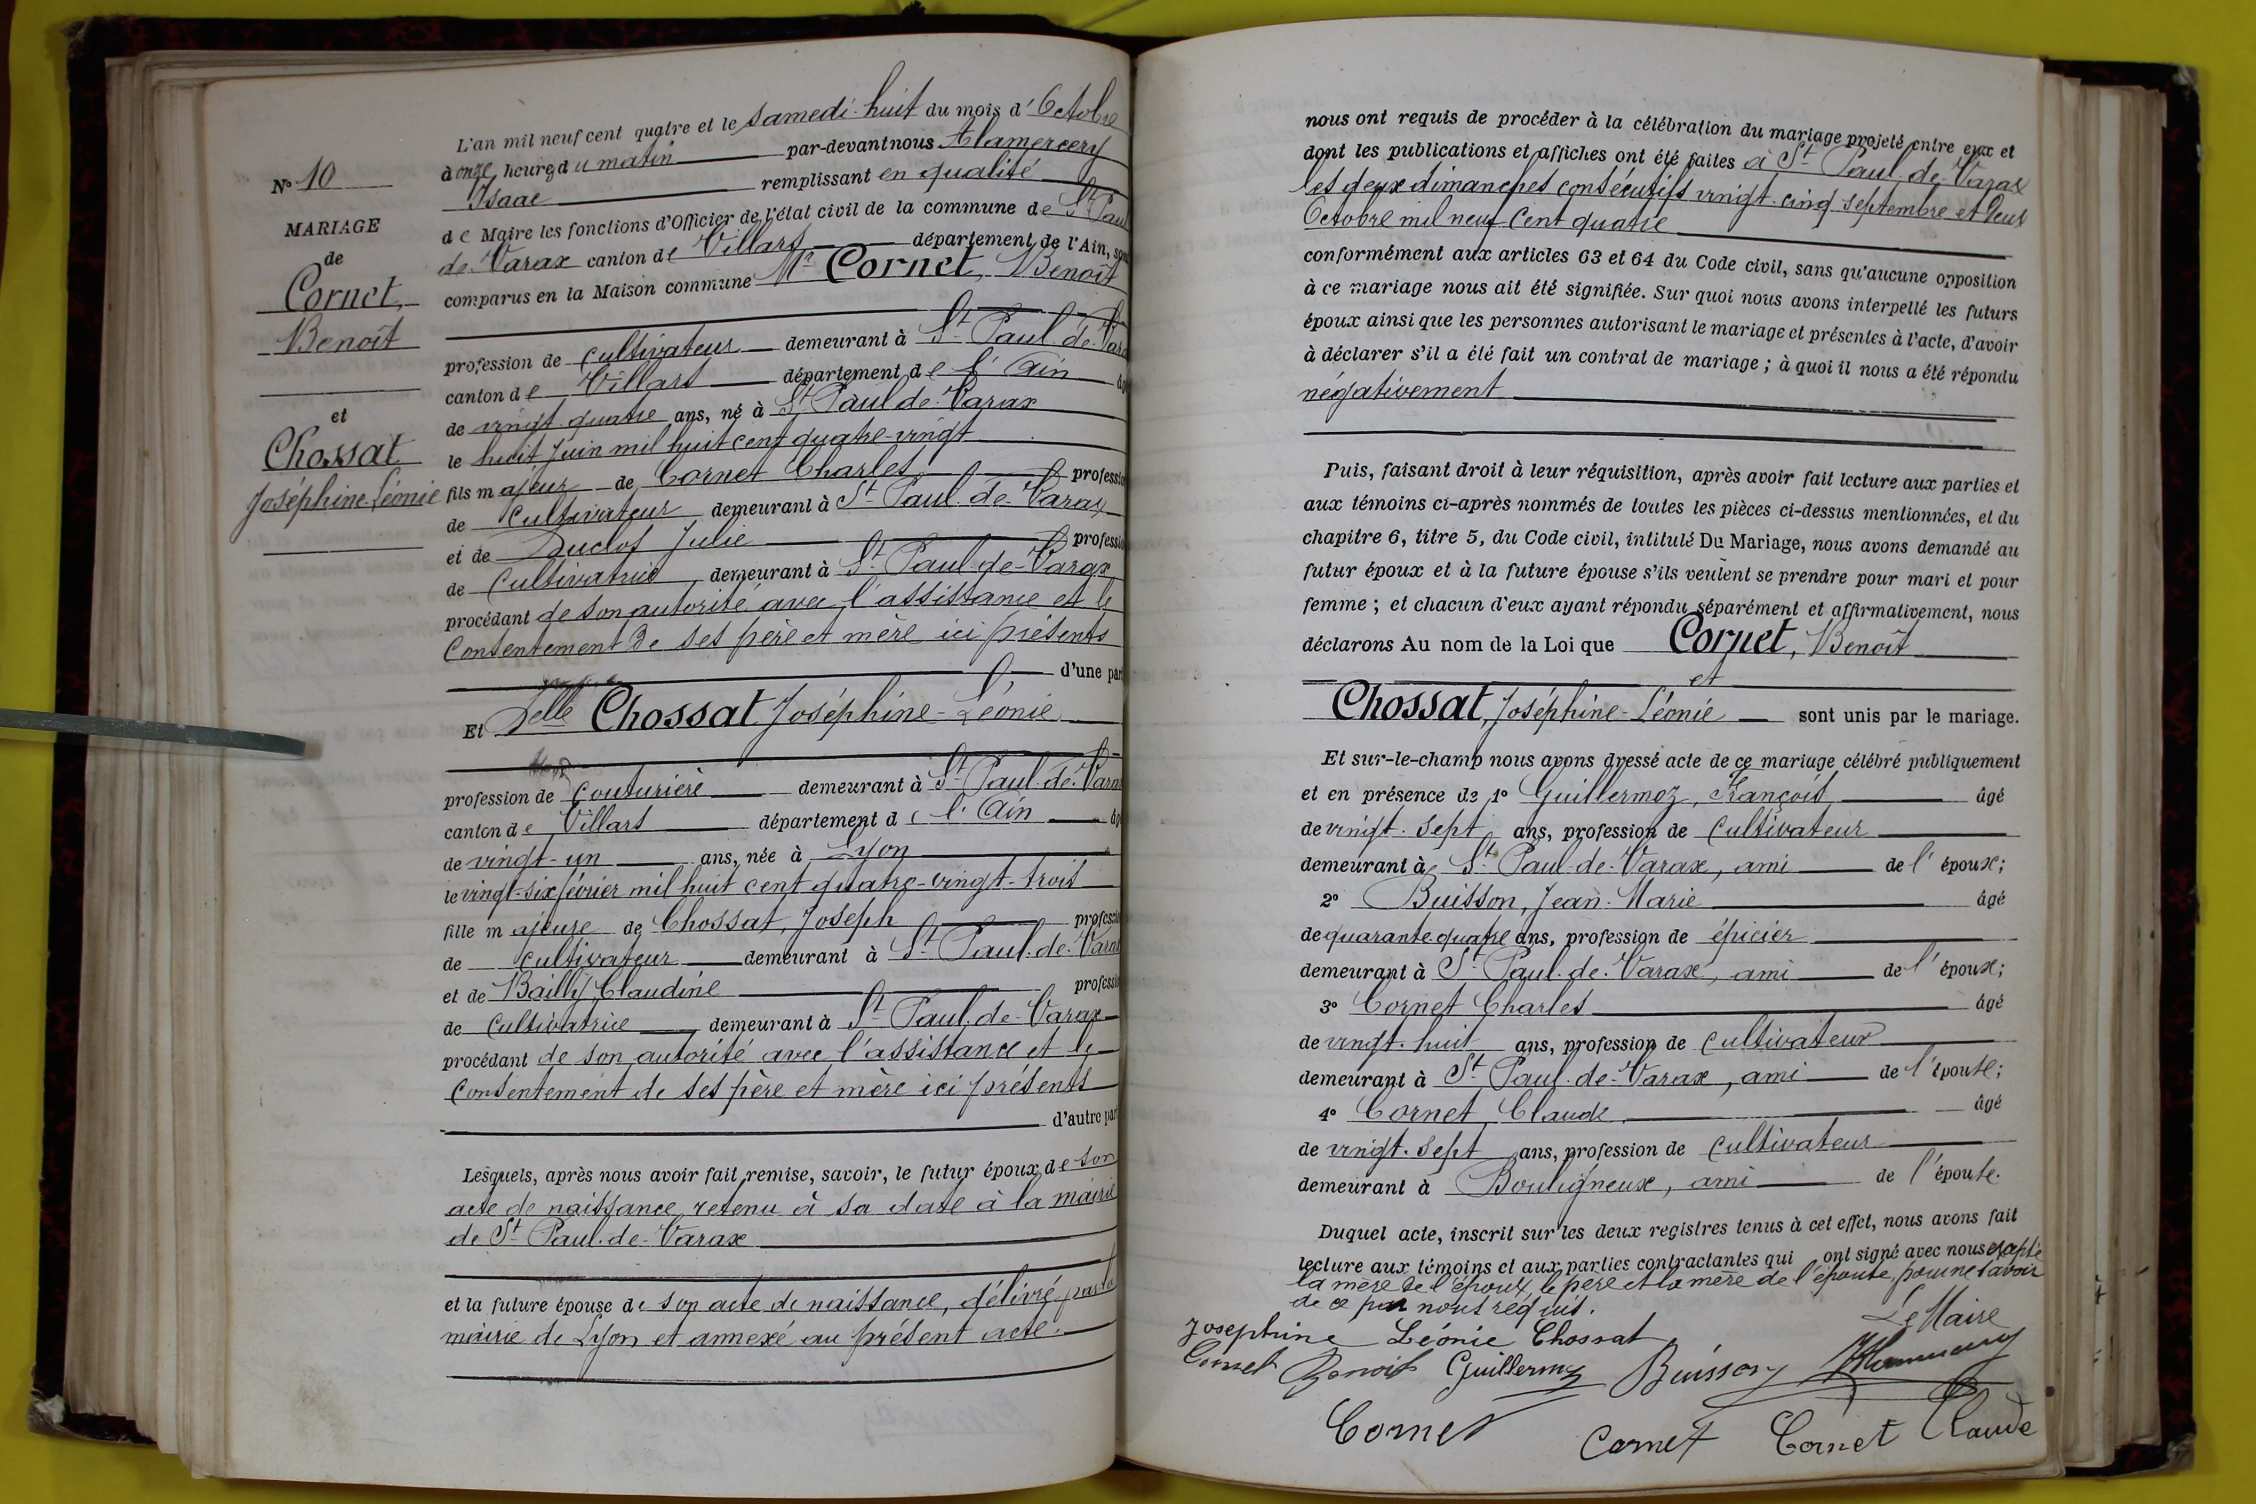 L'an mil neuf cent quatre et le samedi huit du mois d'Octobre
à onze heures du matin par-devant nous Alamercery
Isaac remplissant en qualité
de Maire les fonctions d'Officier de l'état civil de la commune de St Paul
de Varax canton de Villars département de l'Ain, sont
comparus en la Maison commune Mr Cornet, Benoît
profession de cultivateur demeurant à St Paul-de-Varax
canton de Villars département de l'Ain âgé
de vingt-quatre ans, né à St Paul de Varax
le huit Juin mil huit cent quatre-vingt
fils majeur de Cornet Charles profession
de cultivateur demeurant à St Paul-de-Varax
et de Duclos Julie profession
de cultivatrice demeurant à St Paul-de-Varax
procédant de son autorité avec l'assistance et le
consentement de ses père et mère ici présents
d'une part
Et Delle Chossat Joséphine-Léonie
profession de couturière demeurant à St Paul-de-Varax
canton de Villars département de l'Ain âgée
de vingt-un ans, née à Lyon
le vingt-six février mil huit cent quatre-vingt-trois
fille majeure de Chossat, Joseph profession
de cultivateur demeurant à St Paul-de-Varax
et de Bailly Claudine profession
de cultivatrice demeurant à St Paul-de-Varax
procédant de son autorité avec l'assistance et le
consentement de ses père et mère ici présents
d'autre part
Lesquels, après nous avoir fait remise, savoir, le futur époux de son
acte de naissance retenu à sa date à la mairie
de St Paul-de-Varax
et la future épouse de son acte de naissance, délivré par la
mairie de Lyon et annexé au présent acte.
No 10
MARIAGE
de
Cornet,
Benoît
et
Chossat
Joséphine-Léonie
nous ont requis de procéder à la célébration du mariage projeté entre eux et
dont les publications et affiches ont été faites à St Paul-de-Varax
les deux dimanches consécutifs vingt-cinq septembre et deux
Octobre mil neuf cent quatre
conformément aux articles 63 et 64 du Code civil, sans qu'aucune opposition
à ce mariage nous ait été signifiée. Sur quoi nous avons interpellé les futurs
époux ainsi que les personnes autorisant le mariage et présentes à l'acte, d'avoir
à déclarer s'il a été fait un contrat de mariage ; à quoi il nous a été répondu
négativement
Puis, faisant droit à leur réquisition, après avoir fait lecture aux parties et
aux témoins ci-après nommés de toutes les pièces ci-dessus mentionnées, et du
chapitre 6, titre 5, du Code civil, intitulé Du Mariage, nous avons demandé au
futur époux et à la future épouse s'ils veulent se prendre pour mari et pour
femme ; et chacun d'eux ayant répondu séparément et affirmativement, nous
déclarons Au nom de la Loi que Cornet, Benoît
et
Chossat, Joséphine-Léonie sont unis par le mariage.
Et sur-le-champ nous avons dressé acte de ce mariage célébré publiquement
et en présence de 1o Guillermoz, François âgé
de vingt-sept ans, profession de cultivateur
demeurant à St Paul-de-Varax, ami de l'époux;
2o Buisson, Jean-Marie âgé
de quarante quatre ans, profession de épicier
demeurant à St Paul-de-Varax, ami de l'époux;
3o Cornet Charles âgé
de vingt-huit ans, profession de cultivateur
demeurant à St Paul-de-Varax, ami de l'épouse;
4o Cornet Claude âgé
de vingt-sept ans, profession de cultivateur
demeurant à Bouligneux, ami de l'épouse.
Duquel acte, inscrit sur les deux registres tenus à cet effet, nous avons fait
lecture aux témoins et aux parties contractantes qui ont signé avec nous excepté
la mère de l'époux, le père et la mère de l'épouse, pour ne savoir
de ce par nous requis.
Le Maire
Josephine Léonie Chossat
Cornet Benoit Guillermoz Buisson
Cornet Cornet Cornet Claude